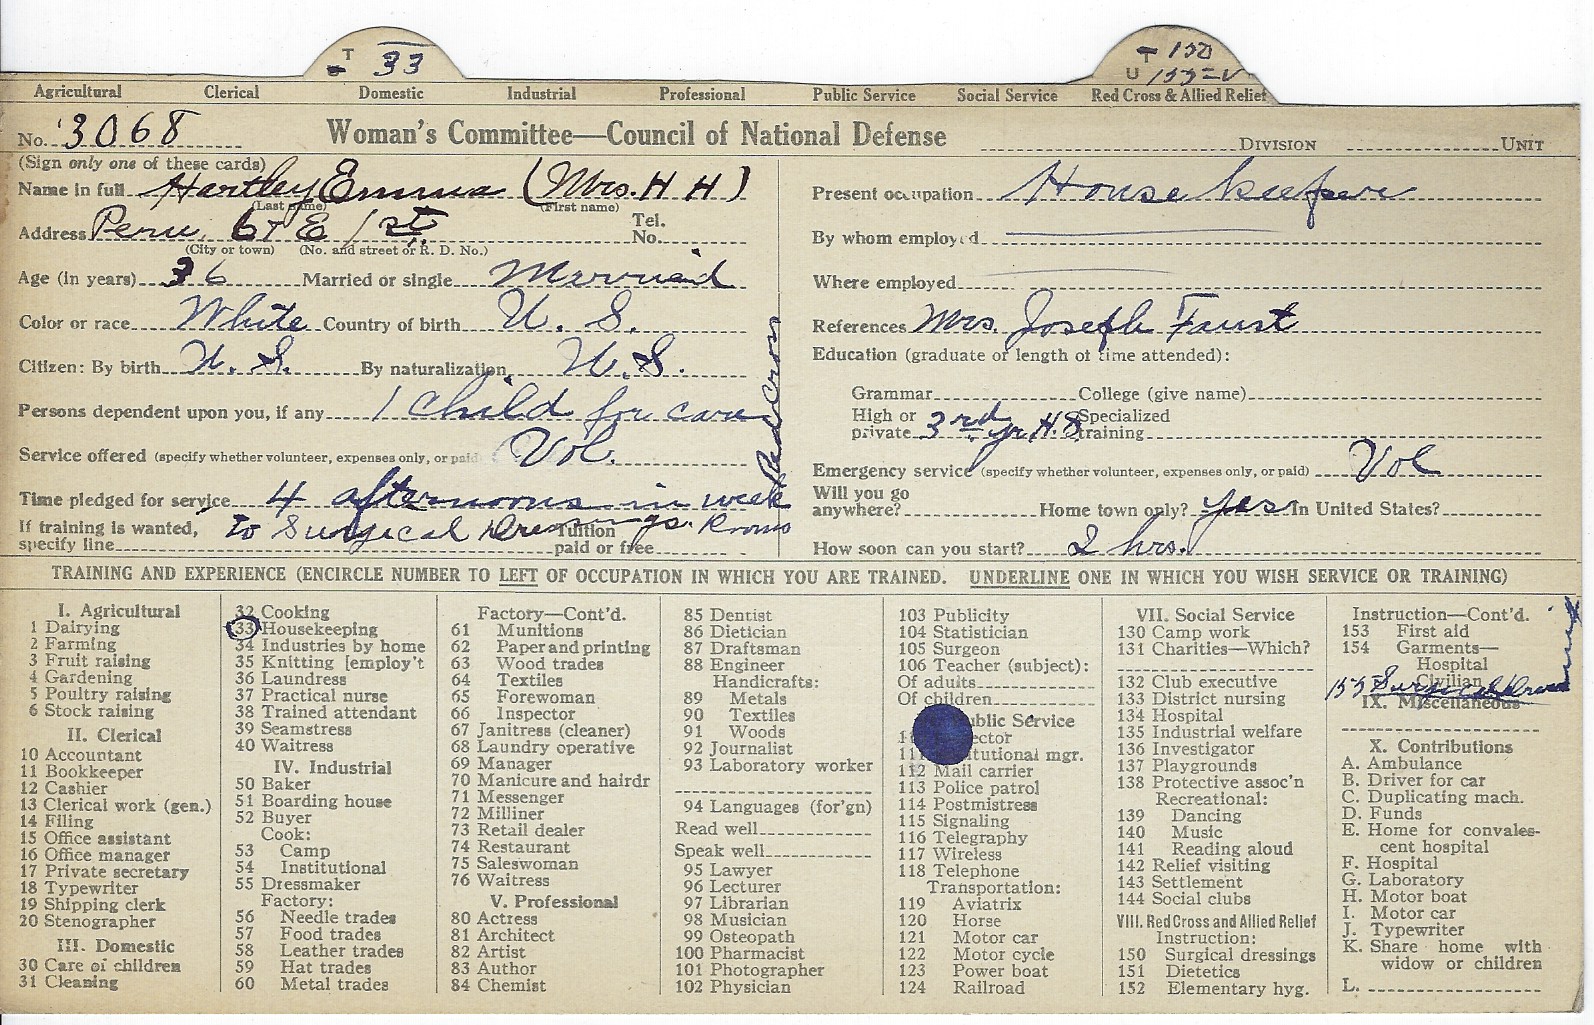 T 33
T 150
U 155=V
Agricultural Clerical Domestic Industrial Professional Public Service Social Service Red Cross & Allied Relief
No. 3068 Woman's Committee—Council of National Defense DIVISION UNIT
(Sign only one of these cards)
Name in full Hartley Emma (Mrs. H H)
(Last name) (First name)
Address Peru, 67 E 1st Tel. No.
(City or town) (No. and street or R. D. No.)
Age (in years) 36 Married or single Married
Color or race White Country of birth U. S.
Citizen: By birth U. S. By naturalization U. S.
Persons dependent upon you, if any 1 child for care
Service offered (specify whether volunteer, expenses only, or paid) Vol.
Time pledged for service 4 afternoons in week
If training is wanted, to Surgical Dressings. Rooms
specify line Tuition paid or free
Red Cross
Present occupation House keeper
By whom employed
Where employed
References Mrs. Joseph Faust
Education (graduate or length of time attended):
Grammar College (give name)
High or private 3rd yr H.S Specialized training
Emergency service (specify whether volunteer, expenses only, or paid) Vol
Will you go anywhere? Home town only? yes In United States?
How soon can you start? 2 hrs.
TRAINING AND EXPERIENCE (ENCIRCLE NUMBER TO LEFT OF OCCUPATION IN WHICH YOU ARE TRAINED. UNDERLINE ONE IN WHICH YOU WISH SERVICE OR TRAINING)
I. Agricultural
1 Dairying
2 Farming
3 Fruit raising
4 Gardening
5 Poultry raising
6 Stock raising
II. Clerical
10 Accountant
11 Bookkeeper
12 Cashier
13 Clerical work (gen.)
14 Filing
15 Office assistant
16 Office manager
17 Private secretary
18 Typewriter
19 Shipping clerk
20 Stenographer
III. Domestic
30 Care of children
31 Cleaning
32 Cooking
33 Housekeeping
34 Industries by home
35 Knitting [employ't
36 Laundress
37 Practical nurse
38 Trained attendant
39 Seamstress
40 Waitress
IV. Industrial
50 Baker
51 Boarding house
52 Buyer
Cook:
53 Camp
54 Institutional
55 Dressmaker
Factory:
56 Needle trades
57 Food trades
58 Leather trades
59 Hat trades
60 Metal trades
Factory—Cont'd.
61 Munitions
62 Paper and printing
63 Wood trades
64 Textiles
65 Forewoman
66 Inspector
67 Janitress (cleaner)
68 Laundry operative
69 Manager
70 Manicure and hairdr
71 Messenger
72 Milliner
73 Retail dealer
74 Restaurant
75 Saleswoman
76 Waitress
V. Professional
80 Actress
81 Architect
82 Artist
83 Author
84 Chemist
85 Dentist
86 Dietician
87 Draftsman
88 Engineer
Handicrafts:
89 Metals
90 Textiles
91 Woods
92 Journalist
93 Laboratory worker
94 Languages (for'gn)
Read well
Speak well
95 Lawyer
96 Lecturer
97 Librarian
98 Musician
99 Osteopath
100 Pharmacist
101 Photographer
102 Physician
103 Publicity
104 Statistician
105 Surgeon
106 Teacher (subject):
Of adults
Of children
ublic Service
ector
tutional mgr.
112 Mail carrier
113 Police patrol
114 Postmistress
115 Signaling
116 Telegraphy
117 Wireless
118 Telephone
Transportation:
119 Aviatrix
120 Horse
121 Motor car
122 Motor cycle
123 Power boat
124 Railroad
VII. Social Service
130 Camp work
131 Charities—Which?
132 Club executive
133 District nursing
134 Hospital
135 Industrial welfare
136 Investigator
137 Playgrounds
138 Protective assoc'n
Recreational:
139 Dancing
140 Music
141 Reading aloud
142 Relief visiting
143 Settlement
144 Social clubs
VIII. Red Cross and Allied Relief
Instruction:
150 Surgical dressings
151 Dietetics
152 Elementary hyg.
Instruction—Cont'd.
153 First aid
154 Garments—
Hospital
Civilian
155 Surgical
IX. Miscellaneous
X. Contributions
A. Ambulance
B. Driver for car
C. Duplicating mach.
D. Funds
E. Home for convales-
cent hospital
F. Hospital
G. Laboratory
H. Motor boat
I. Motor car
J. Typewriter
K. Share home with
widow or children
L.